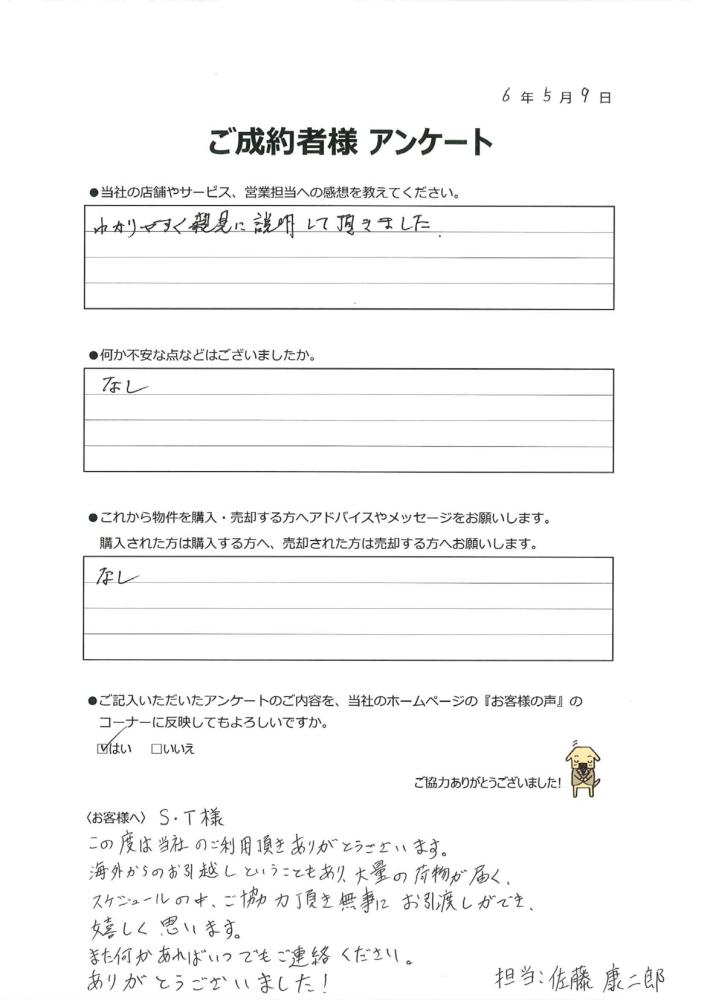 6年5月9日
ご成約者様 アンケート
●当社の店舗やサービス、営業担当への感想を教えてください。
わかりやすく親見に説明して頂きました.
●何か不安な点などはございましたか。
なし
●これから物件を購入・売却する方へアドバイスやメッセージをお願いします。
購入された方は購入する方へ、売却された方は売却する方へお願いします。
なし
●ご記入いただいたアンケートのご内容を、当社のホームページの『お客様の声』の
コーナーに反映してもよろしいですか。
☑はい □いいえ
ご協力ありがとうございました!
〈お客様へ〉 S・T様
この度は当社のご利用頂きありがとうございます。
海外からのお引越しということもあり、大量の荷物が届く、
スケジュールの中、ご協力頂き無事にお引渡しができ、
嬉しく思います。
また何かあればいつでもご連絡ください。
ありがとうございました!
担当:佐藤 康二郎